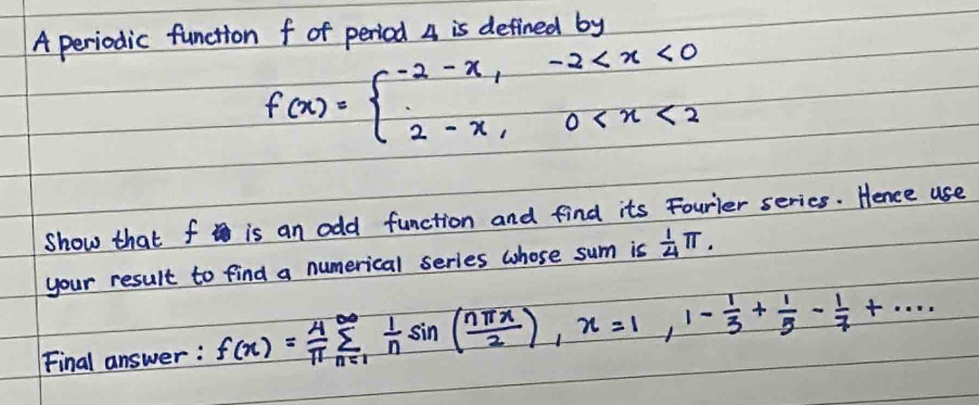 A periodic function f of period 4 is defined by
f(x) = { -2 - x, -2 < x < 0
2 - x, 0 < x < 2
Show that f is an odd function and find its Fourier series. Hence use
your result to find a numerical series whose sum is 1/4 π.
Final answer : f(x) = 4/π ∑_{n=1}^{∞} 1/n sin (nπx/2), x = 1, 1 - 1/3 + 1/5 - 1/7 + ....